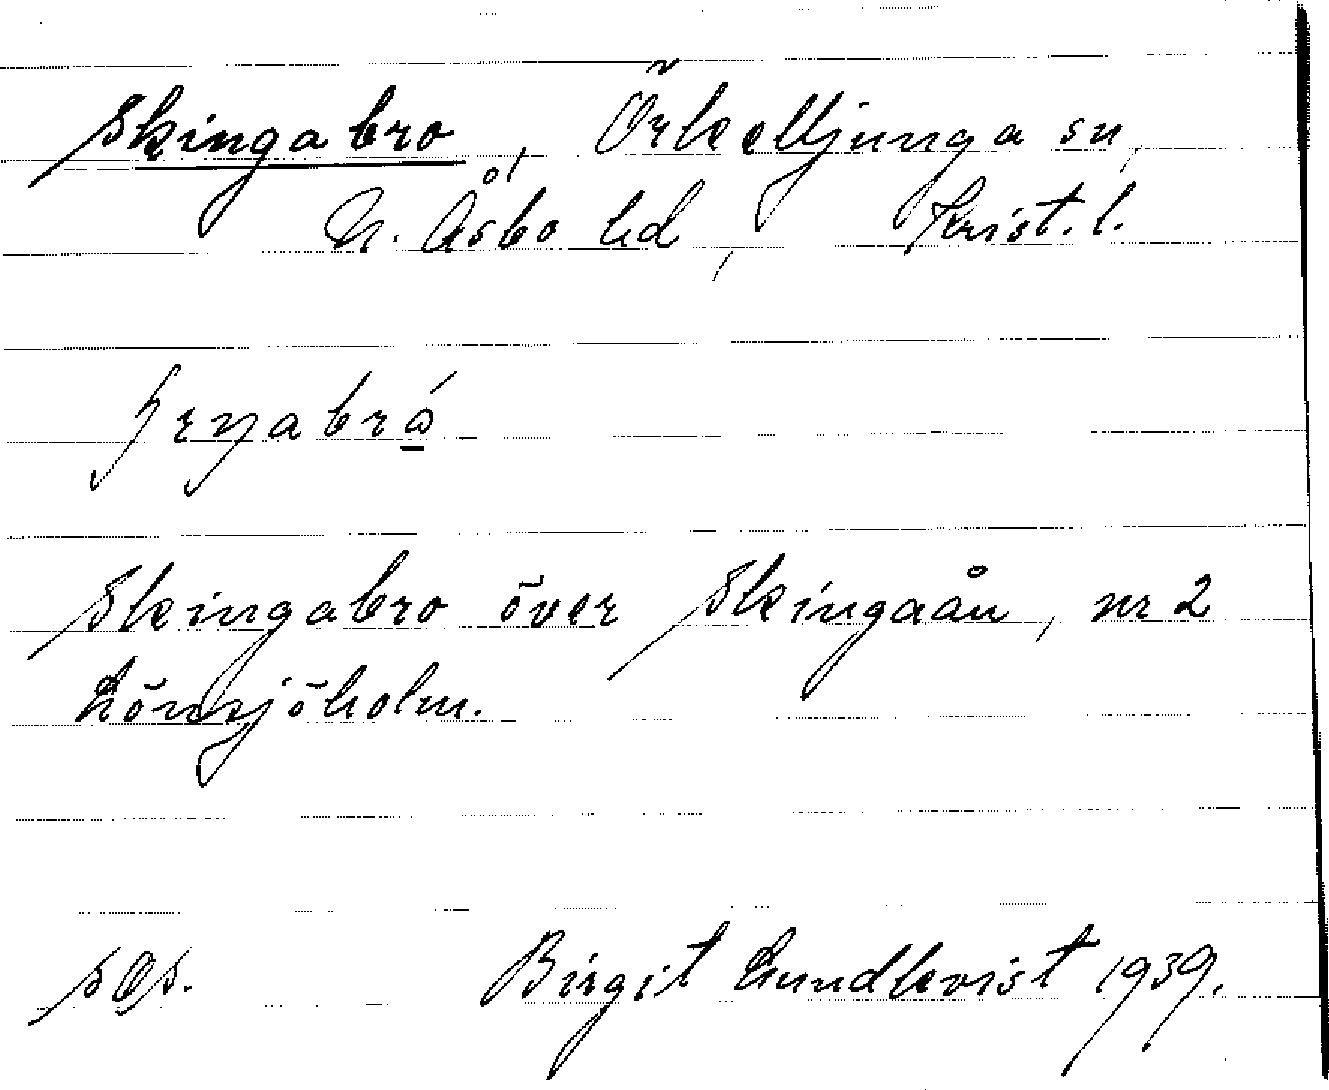 Skingabro, Örkelljunga sn,
N. Åsbo hd, Krist. l.
Skingabro över Skingaån, nr 2
Lönnsjöholm.
Birgit Lundkvist 1939.